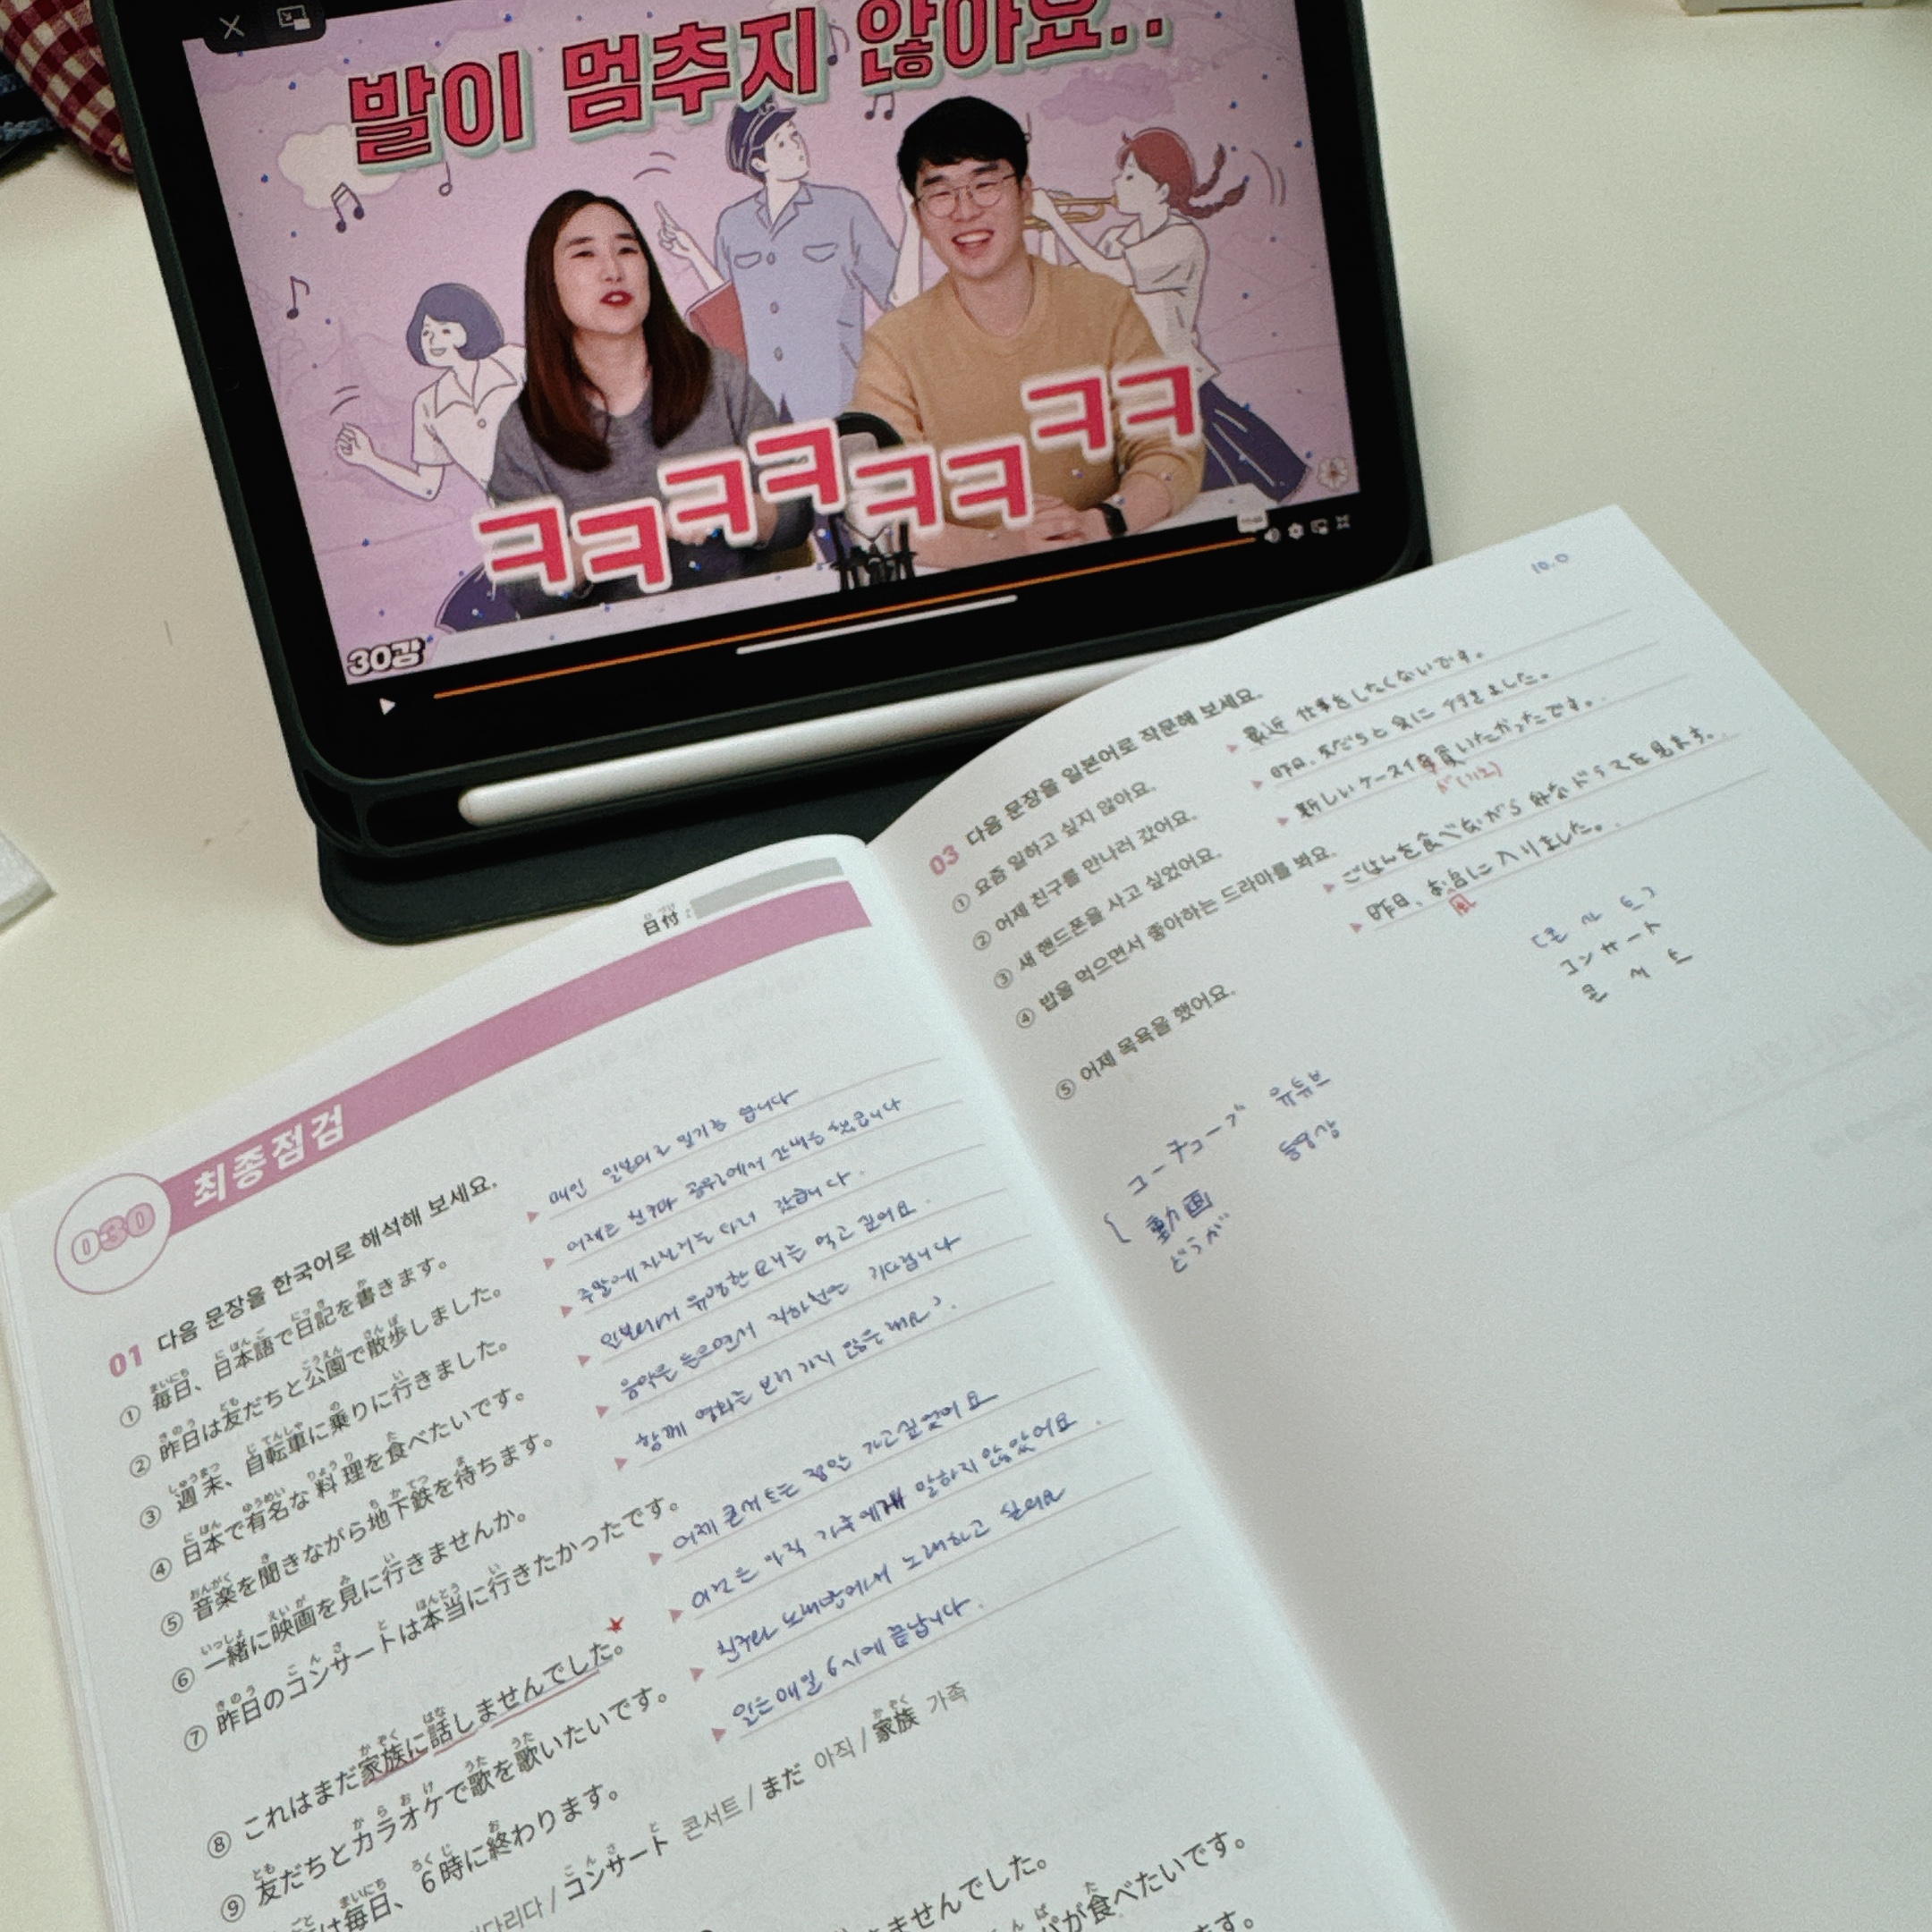 발이 멈추지 않아요..
ㅋㅋㅋㅋㅋㅋㅋㅋ
30강
日付
030 최종점검
01 다음 문장을 한국어로 해석해 보세요.
① 毎日、日本語で日記を書きます。
매일 일본어로 일기를 씁니다
② 昨日は友だちと公園で散歩しました。
어제는 친구와 공원에서 산책을 했습니다
③ 週末、自転車に乗りに行きました。
주말에 자전거를 타러 갔습니다.
④ 日本で有名な料理を食べたいです。
일본에서 유명한 요리를 먹고 싶어요.
⑤ 音楽を聞きながら地下鉄を待ちます。
음악을 들으면서 지하철을 기다립니다
⑥ 一緒に映画を見に行きませんか。
함께 영화를 보러 가지 않을래요?
⑦ 昨日のコンサートは本当に行きたかったです。
어제 콘서트는 정말 가고싶었어요
⑧ これはまだ家族に話しませんでした。
이건 아직 가족에게 말하지 않았어요.
⑨ 友だちとカラオケで歌を歌いたいです。
친구와 노래방에서 노래하고 싶어요
は毎日、6時に終わります。
일은 매일 6시에 끝납니다.
다리다 / コンサート 콘서트 / まだ 아직 / 家族 가족
ませんでした。
が食べたいです。
ます。
10.0
03 다음 문장을 일본어로 작문해 보세요.
① 요즘 일하고 싶지 않아요.
最近 仕事をしたくないです。
② 어제 친구를 만나러 갔어요.
昨日、友だちと 会に 行きました。
③ 새 핸드폰을 사고 싶었어요.
新しいケータイを買いたかったです。
④ 밥을 먹으면서 좋아하는 드라마를 봐요.
ごはんを食べながら 好きなドラマを見ます。
⑤ 어제 목욕을 했어요.
昨日、お風に入りました。
風
コンサート
콘 서 트
ユーチューブ 유튜브
動画 동영상
どうが